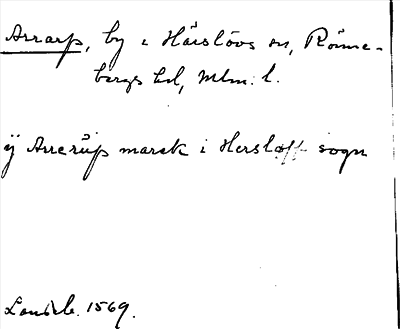 Arrarp, by i Härslövs sn, Rönne-
bergs hd, Mlm. l.
ÿ Arrerŭp marck i Hersløff sogn
Landeb. 1569.